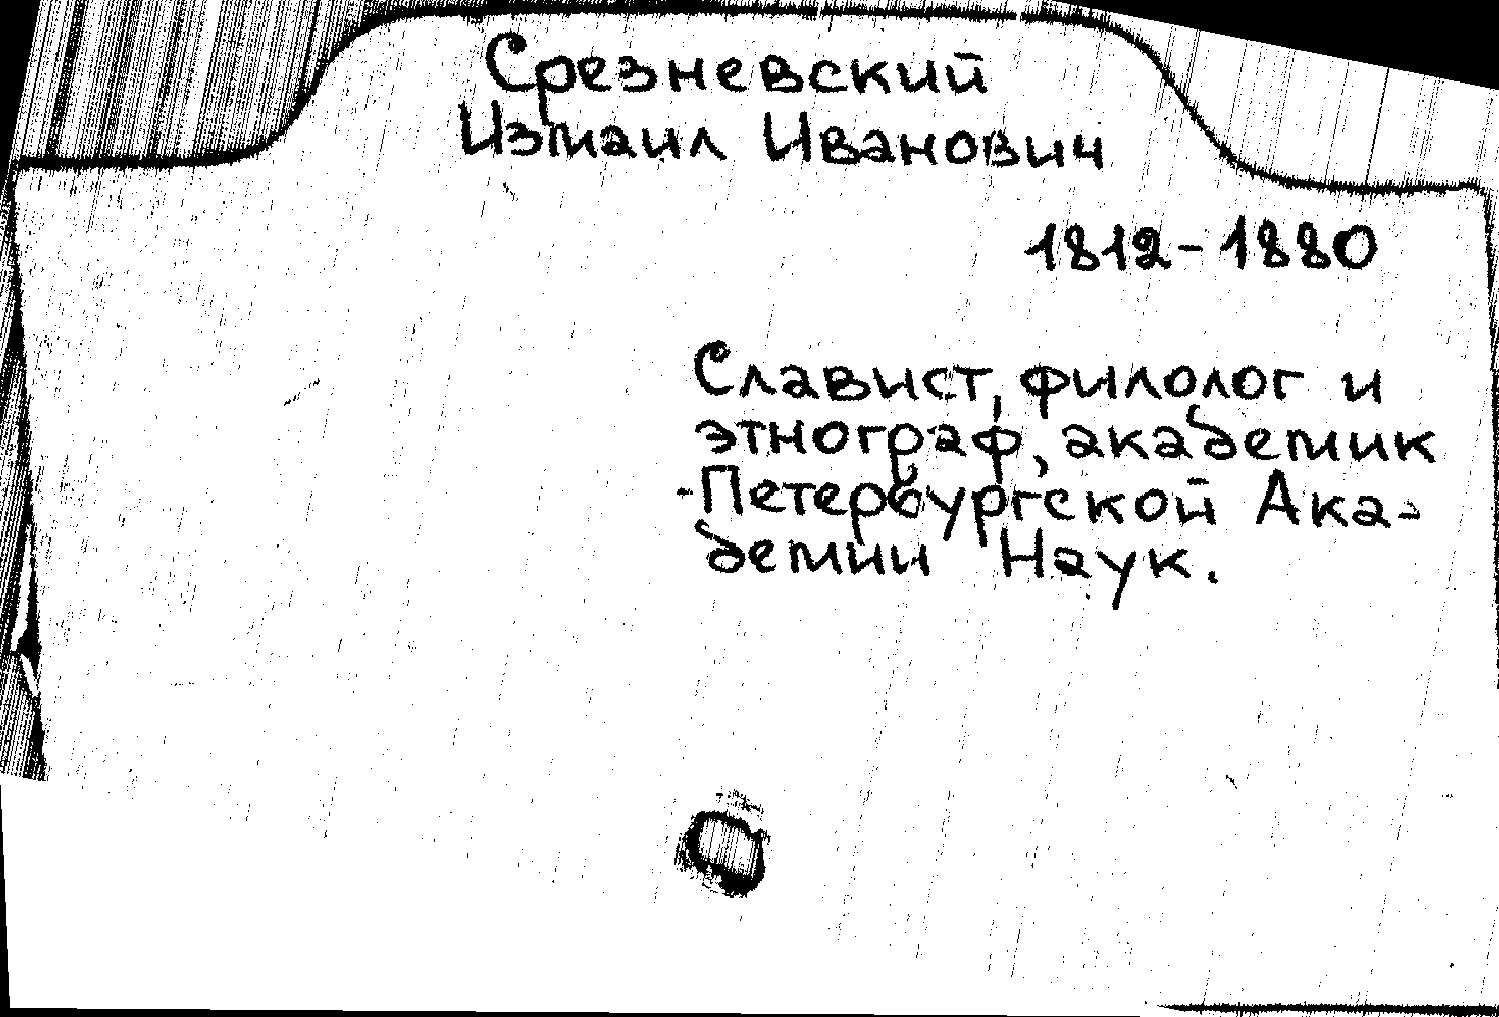 Срезневский
Измаил Иванович
1812-1880
Славист, филолог и
этнограф, академик
Петербургской Ака-
демии Наук.